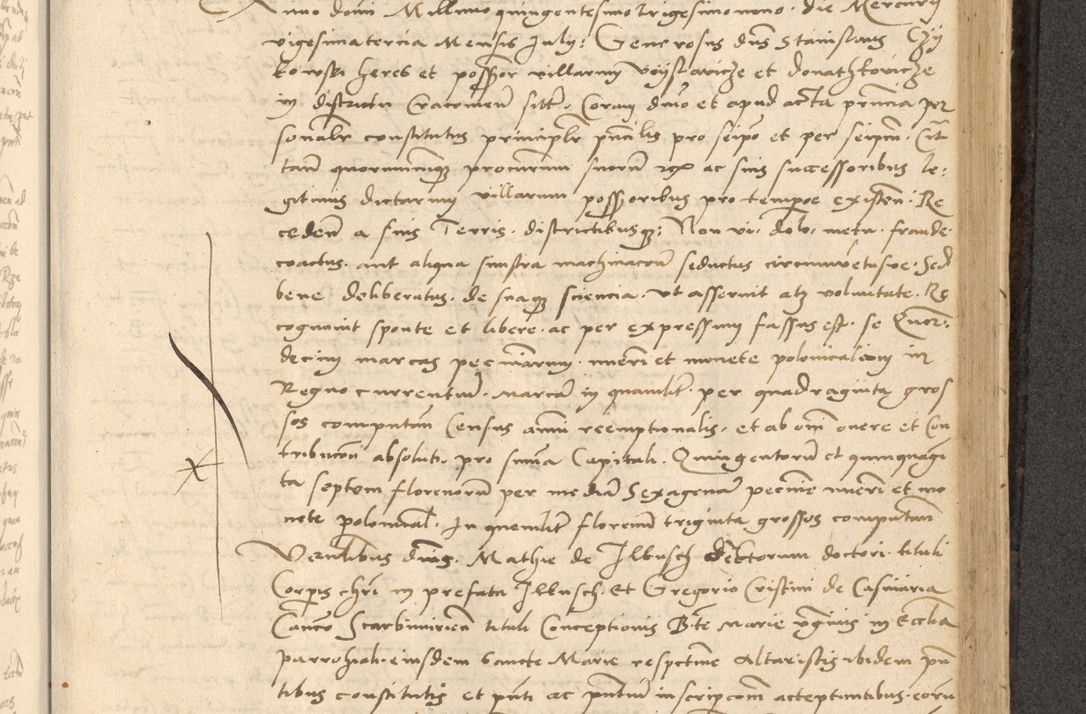 Anno domi Millimo quingentesimo trigesimo nono. die Mercurij
vigesima tercia Mensis Julij: Generosus dns Stanislaus Czy
kowski heres et possor villarum Voyslawicze et donathkovicze
in districtu Cracovien sitt. Coram dno et apud acta pntia per
sonalr constitutus principlr pncilis pro seipo et per seipm. Cit
tam quorumcunqz procurum suorum ac suis successoribus le:
gitimis dictarum villarum possoribus pro tempore existen. Re
ceden a suis Terris. districtibusqz: Non vi. dolo. metu. fraude
coactus. aut aliqua sinistra machinacon seductus circumventusve. Sed
bene deliberatus. de suaqz sciencia. vt asseruit atz voluntate. Re
cognovit sponte et libere. ac per expressum fassus est. se Quor:
decim marcas pecuniarum. numeri et monete polonicalium in
Regno currentium. marcam in quamlibt per quadraginta gros
sos computan Census annui reemptionalis. et ab omi onere et Con
tribucon absoluti. pro suma Capitali. Quingentorum et quinquagi
ta septem florenorum per mediam Sexagenam pecunie numeri et mo
nete polonical. In quemlibt florenum triginta grossos computan
Venlibus dnis. Mathie de Ilkusch decretorum doctori. tituli
Corpis chri in prefata Ilkusch. Et Gregorio Cristini de Casimiria
Canco Scarbimirien tituli Conceptionis Bte Marie virginis in Ecclia
parrohiali eiusdem Sancte Marie respctive Altaristis ibidem pn
tibus constitutis et pnti ac pntium inscripcom acceptantibus. eorum